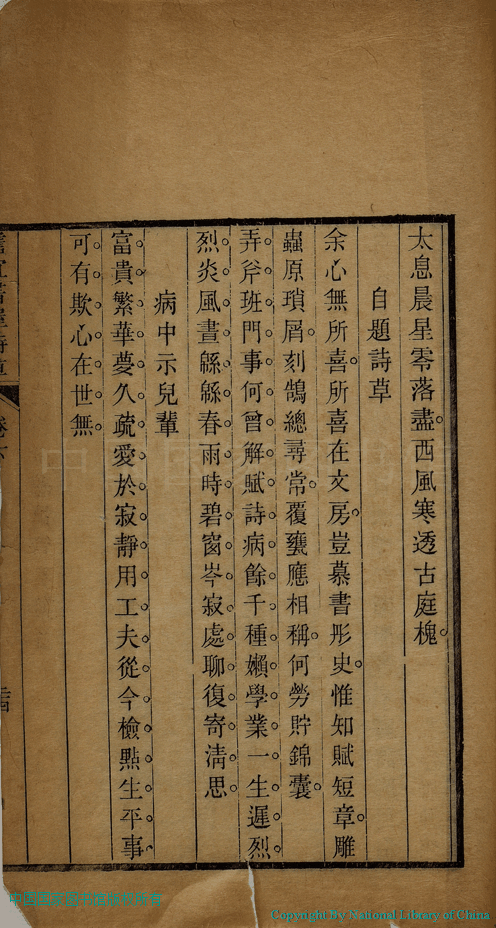 太息晨星零落盡西風寒透古庭槐
自題詩草
余心無所喜所喜在文房豈慕書彤史惟知賦短章雕
蟲原瑣屑刻鵠總尋常覆甕應相稱何勞貯錦囊
弄斧班門事何曾解賦詩病餘千種嬾學業一生遲烈
烈炎風晝緜緜春雨時碧窗岑寂處聊復寄清思
病中示兒輩
富貴繁華夢久疏愛於寂靜用工夫從今檢點生平事
可有欺心在世無
Copyright By National Library of China